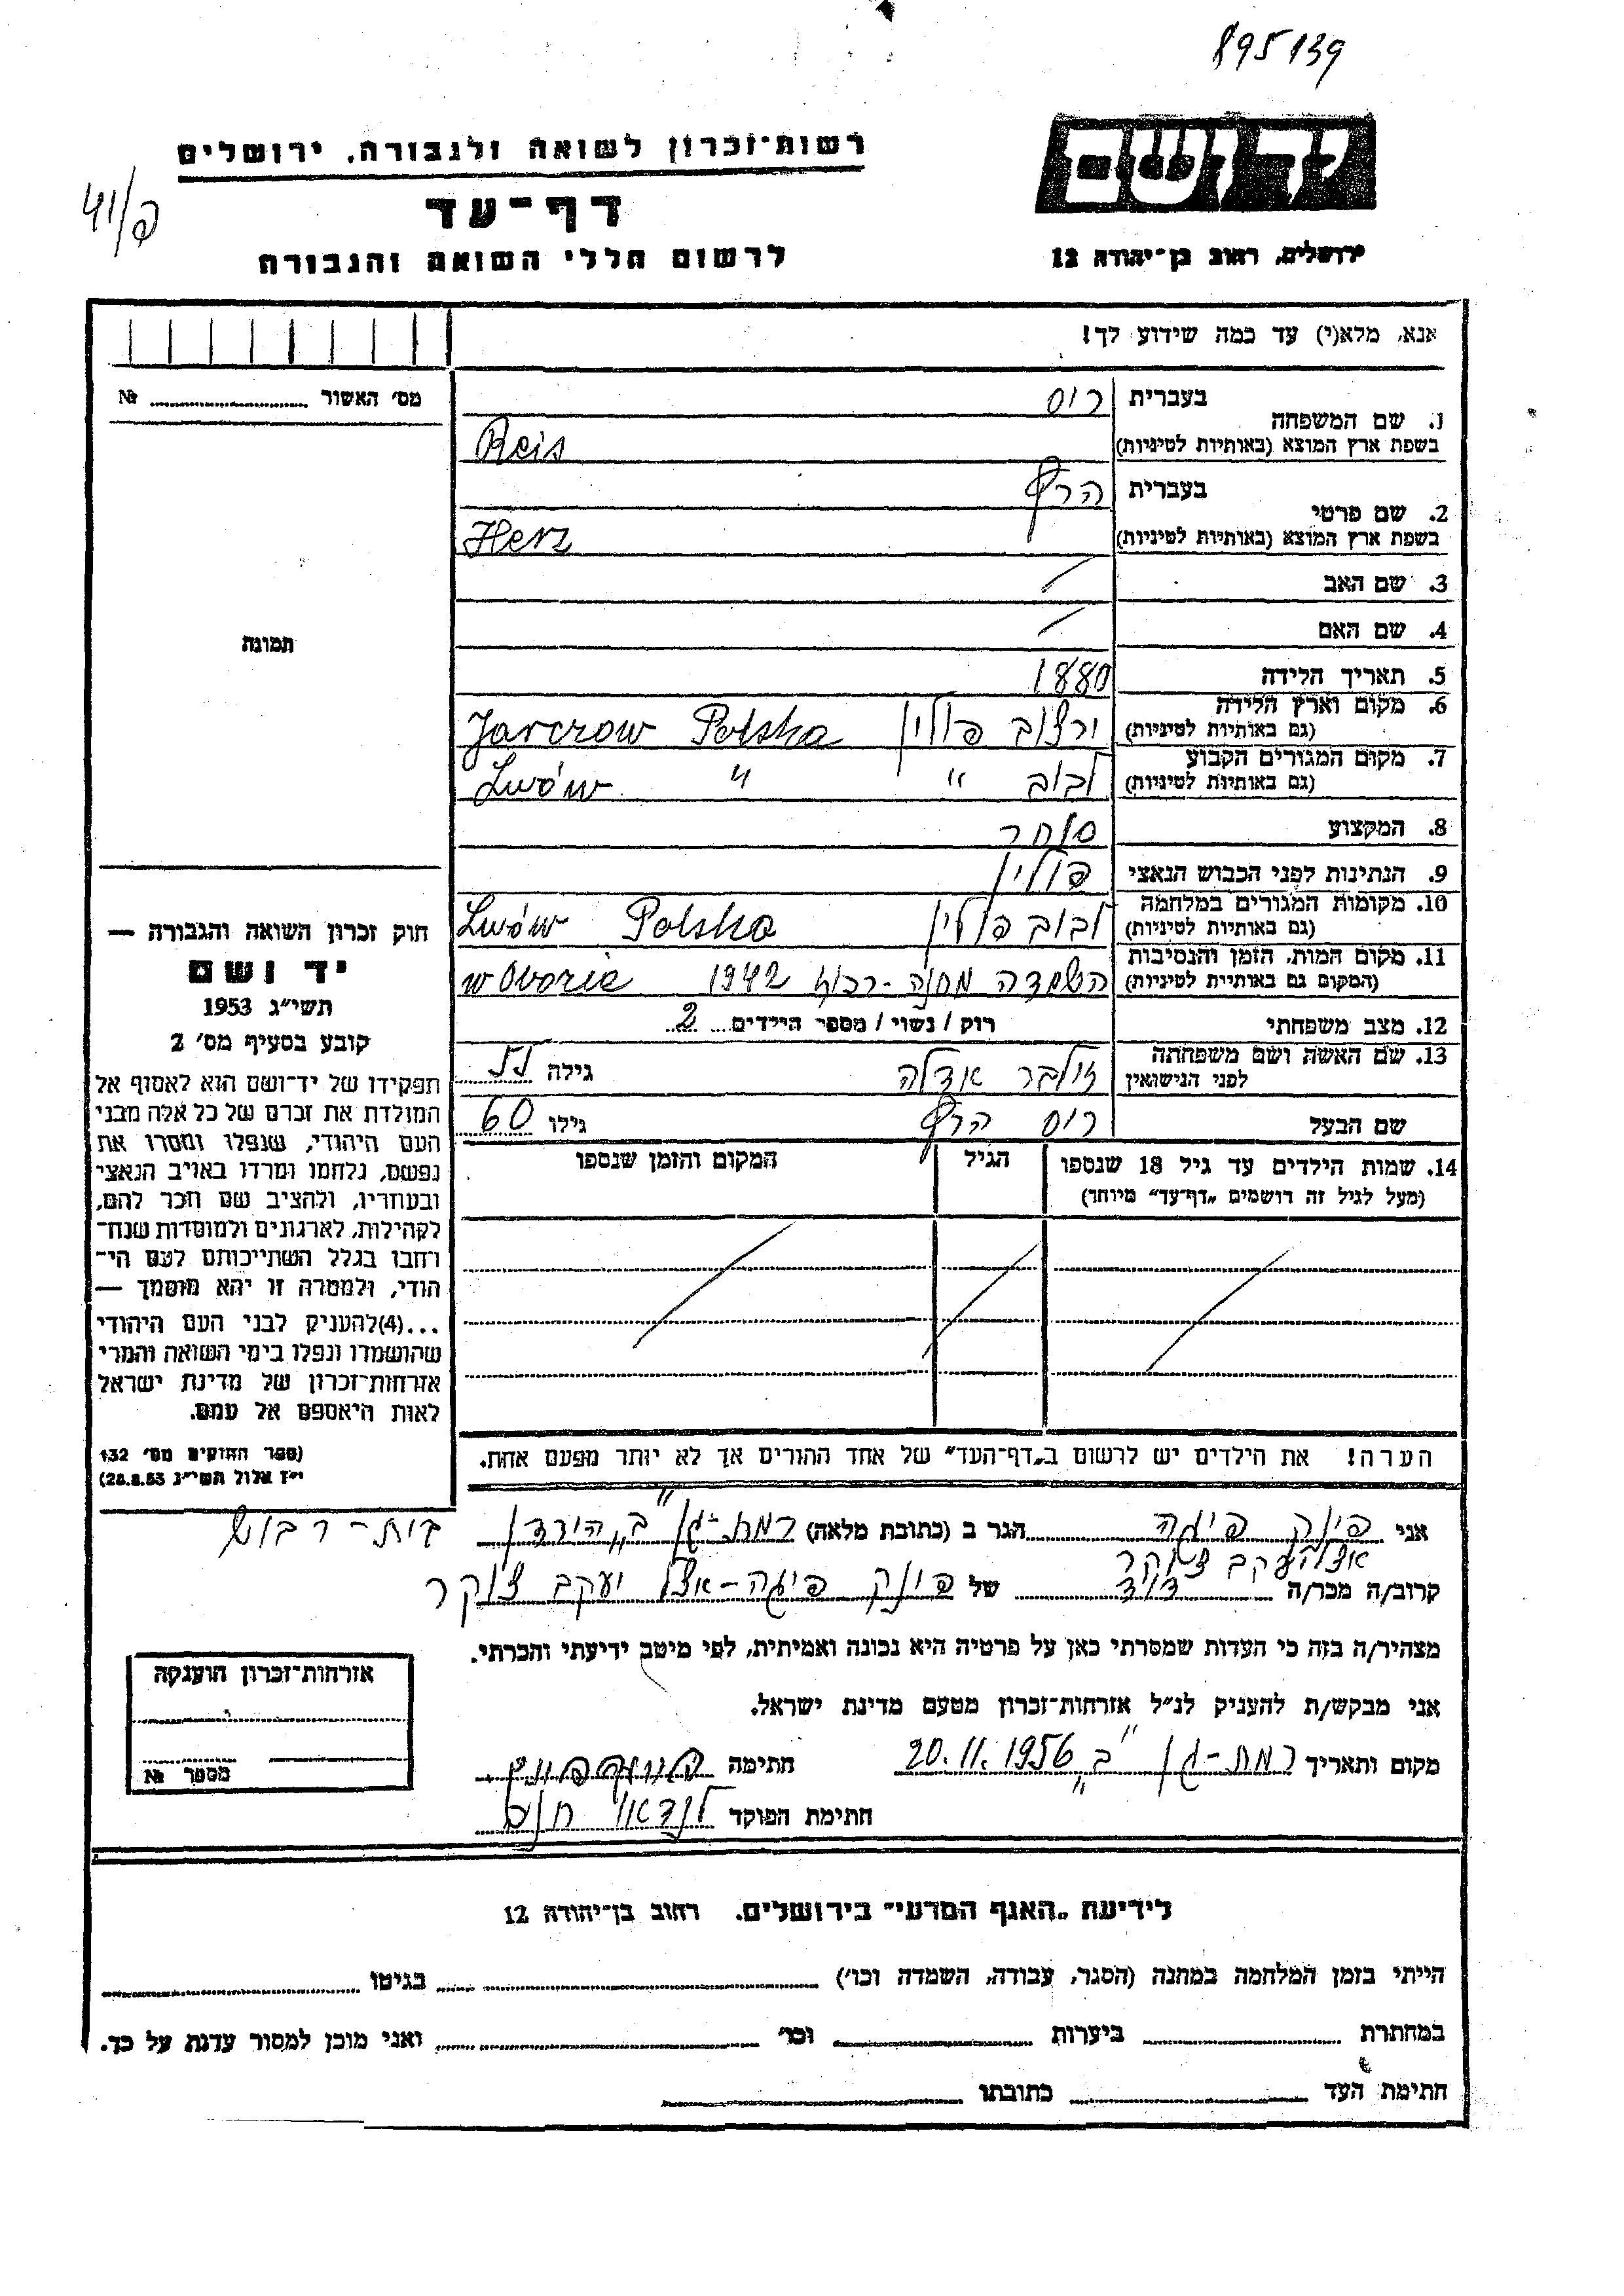 895139
יד ושם
רשות־זכרון לשואה ולגבורה, ירושלים
דף־עד
לרשום חללי השואה והגבורה
ירושלים, רחוב בן־יהודה 12
41/ק
אנא, מלא(י) עד כמה שידוע לך!
מס׳ האשור № 
1. שם המשפחה
בעברית ריס
בשפת ארץ המוצא (באותיות לטיניות) Reis
2. שם פרטי
בעברית הרץ
בשפת ארץ המוצא (באותיות לטיניות) Herz
3. שם האב /
4. שם האם /
5. תאריך הלידה 1880
6. מקום וארץ הלידה
(גם באותיות לטיניות) פולין Jarczow Polska
7. מקום המגורים הקבוע
(גם באותיות לטיניות) לבוב " Lwów "
8. המקצוע סוחר
9. הנתינות לפני הכבוש הנאצי פולין
10. מקומות המגורים במלחמה
(גם באותיות לטיניות) לבוב פולין Lwów Polska
11. מקום המות, הזמן והנסיבות
(המקום גם באותיות לטיניות) השמדה מחנה 1942
12. מצב משפחתי רוק / נשוי / מספר הילדים 2
13. שם האשה ושם משפחתה
לפני הנישואין זילבר אדלה גילה 55
שם הבעל ריס הרץ גילו 60
14. שמות הילדים עד גיל 18 שנספו הגיל המקום והזמן שנספו
(מעל לגיל זה רושמים „דף־עד" מיוחד)
הערה! את הילדים יש לרשום ב„דף־העד" של אחד ההורים אך לא יותר מפעם אחת.
תמונה
חוק זכרון השואה והגבורה —
יד ושם
תשי״ג 1953
קובע בסעיף מס׳ 2
תפקידו של יד־ושם הוא לאסוף אל
המולדת את זכרם של כל אלה מבני
העם היהודי, שנפלו ומסרו את
נפשם, נלחמו ומרדו באויב הנאצי
ובעוזריו, ולהציב שם וזכר להם,
לקהילות, לארגונים ולמוסדות שנח־
רחבו בגלל השתייכותם לעם הי־
הודי, ולמטרה זו יהא מוסמך —
...(4) להעניק לבני העם היהודי
שהושמדו ונפלו בימי השואה והמרי
אזרחות־זכרון של מדינת ישראל
לאות היאספם אל עמם.
(ספר החוקים מס׳ 132
י״ז אלול תשי״ג 28.8.53)
אני פינק פיגה הגר ב (כתובת מלאה) רמת-גן ב„ הירדן
אצל יעקב צוקר
קרוב/ה מכר/ה דוד של פינק פיגה-אצל יעקב צוקר
מצהיר/ה בזה כי העדות שמסרתי כאן על פרטיה היא נכונה ואמיתית, לפי מיטב ידיעתי והכרתי.
אני מבקש/ת להעניק לנ״ל אזרחות־זכרון מטעם מדינת ישראל.
מקום ותאריך רמת-גן ב„ 20.11.1956 חתימה
חתימת הפוקד לנדאו חיים
אזרחות־זכרון הוענקה
מספר №
לידיעת „האגף המדעי" בירושלים. רחוב בן־יהודה 12
הייתי בזמן המלחמה במחנה (הסגר, עבודה, השמדה וכו׳) בגיטו
במחתרת ביערות וכו׳ ואני מוכן למסור עדות על כך.
חתימת העד כתובתו